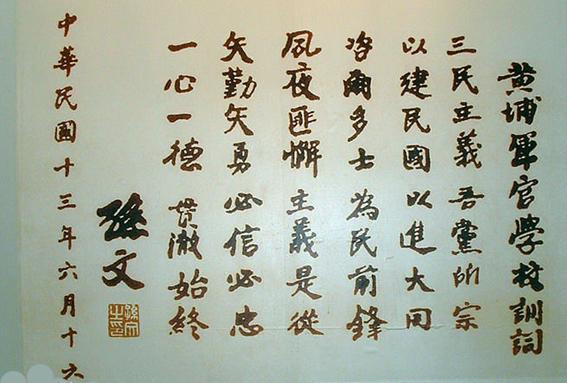 黃埔軍官學校訓詞
三民主義吾黨所宗
以建民國以進大同
咨爾多士為民前鋒
夙夜匪懈主義是從
矢勤矢勇必信必忠
一心一德貫澈始終
孫文
孫文之印
中華民國十三年六月十六